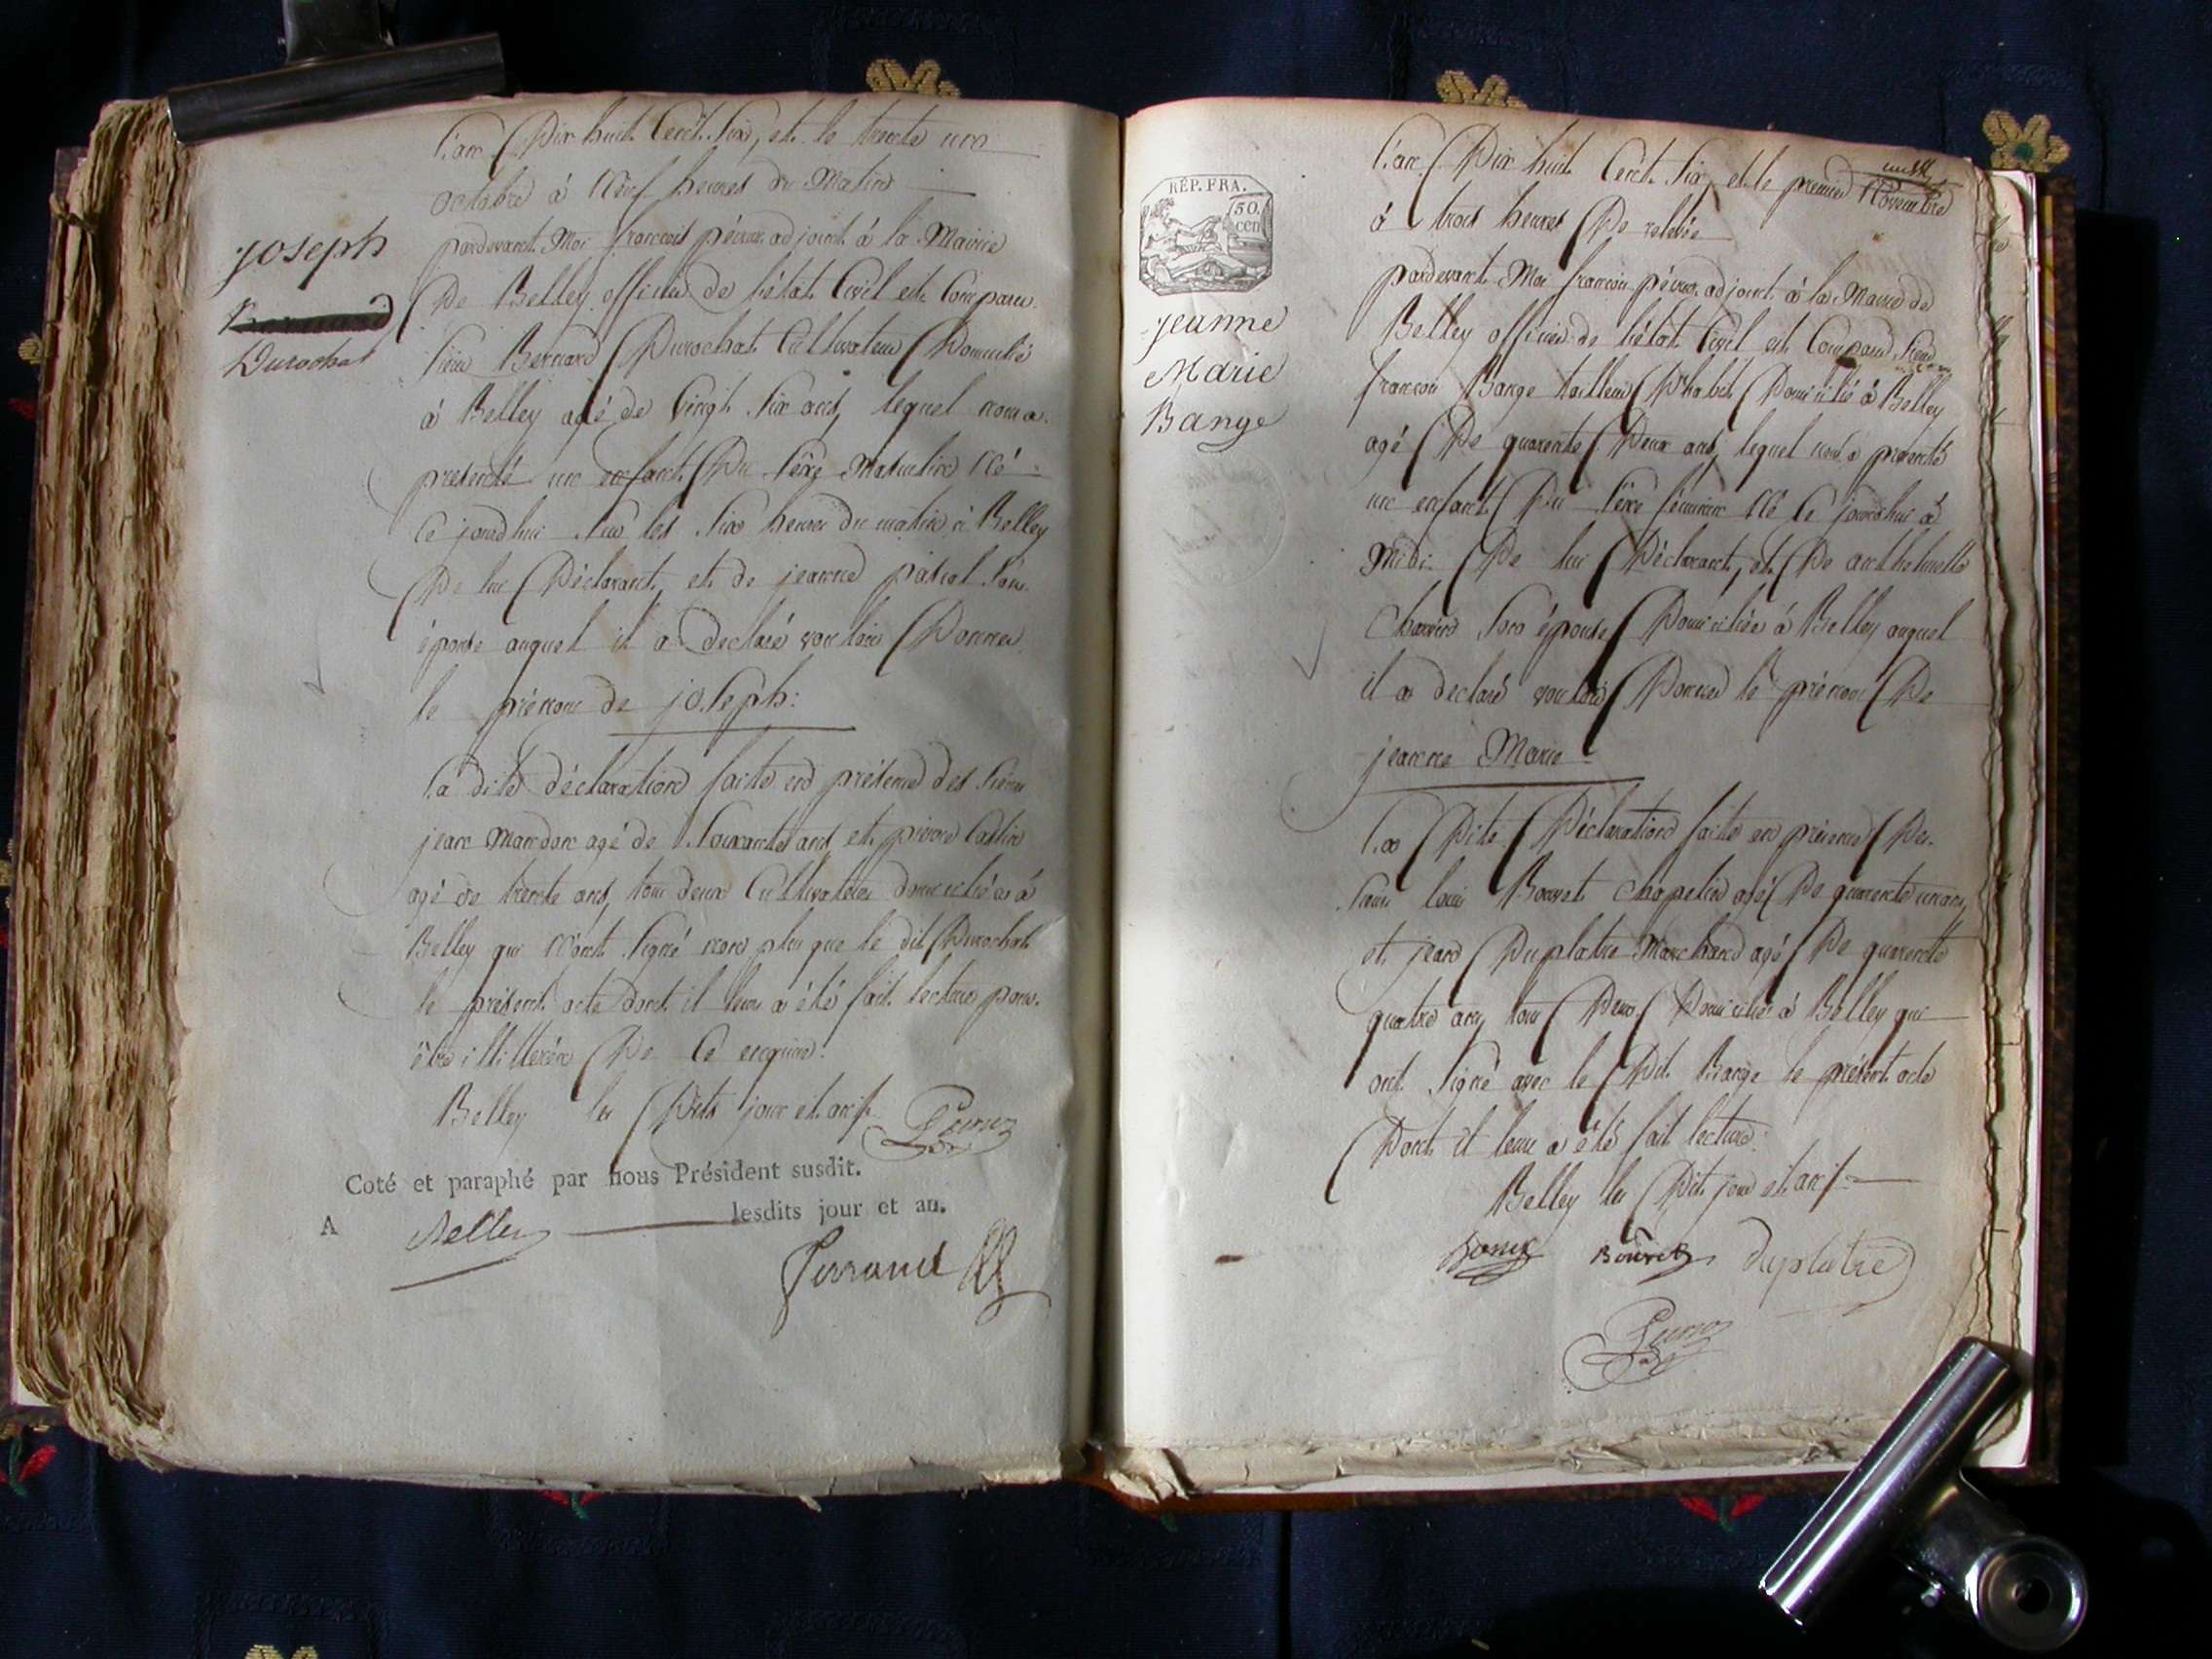 L'an Dix huit Cent Six, et le trente un
octobre à Neuf heures du Matin
joseph
Durochat
pardevant Moi francois pévroz adjoint à la Mairie
De Belley officier de l'état Civil est Comparu
Sieur Bernard Durochat Cultivateur Domicilié
à Belley agé de Vingt Six ans, lequel nous a
presenté un enfant Du Sexe Masculin Né
Ce jourdhui sur les Six heures du matin à Belley
De lui Déclarant, et de jeanne pascal Son
épouse auquel il a declaré vouloir Donner
le prénom de joseph:
La dite déclaration faite en présence des Sieurs
jean Mandon agé de Soixante ans, et pierre Castin
agé de trente ans, tous deux Cultivateurs domiciliés à
Belley qui N'ont Signé non plus que le dit Durochat
le présent acte dont il leur a été fait lecture pour
être illitterés De Ce enquis:
Belley les Dits jour et an
Coté et paraphé par nous Président susdit.
A Belley lesdits jour et an.
RÉP. FRA.
50.
cen
jeanne
Marie
Bange
L'an Dix huit Cent Six, et le premier Novembre
à trois heures De relevée
pardevant Moi francois pévroz adjoint à la Mairie de
Belley officier de l'état Civil est Comparu Sieur
francois Bange tailleur D'habit Domicilié à Belley
agé De quarente Deux ans, lequel nous a presenté
un enfant Du Sexe féminin Né Ce jourdhui à
Midi De lui Déclarant, et De anthelmette
son épouse Domiciliée à Belley auquel
il a declaré vouloir Donner le prénom De
jeanne Marie
La Dite Déclaration faite en présence Des
Sieurs louis Bouvet Chapelier agé De quarente un ans,
et jean Duplatre Marchand agé De quarente
quatre ans, tous Deux Domiciliés à Belley qui
ont Signé avec le Dit Bange le présent acte
Dont il leur a été fait lecture:
Belley les Dit jour et an
Bange Bouvet duplatre